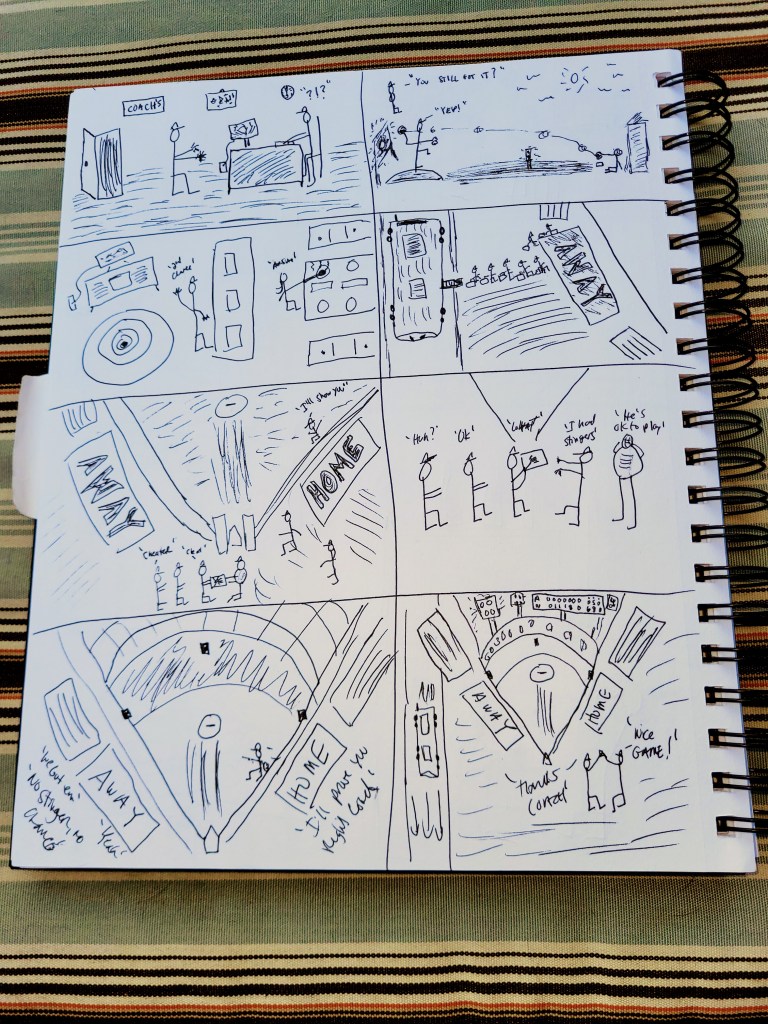 COACH'S
"?!?"
"YOU STILL GOT IT?"
"YEP!"
"AWESOME!"
AWAY
AWAY
"I'll show you"
HOME
'Cheater'
'Cheat'
"Huh?"
'Ok'
'WHAT'
'I had
stingers'
'He's
OK to play'
AWAY
HOME
'We Got em'
'No Stinger, no
Chance'
'Yeah'
'I'll prove you
right Coach'
AWAY
HOME
'NICE
GAME!'
'Thanks
Coach'